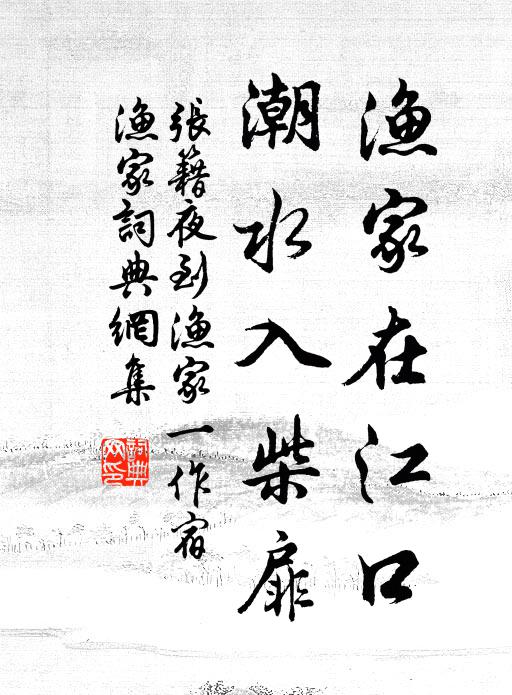 漁家在江口
潮水入柴扉
張籍夜到漁家一作宿
漁家詞典網集
詞典網印